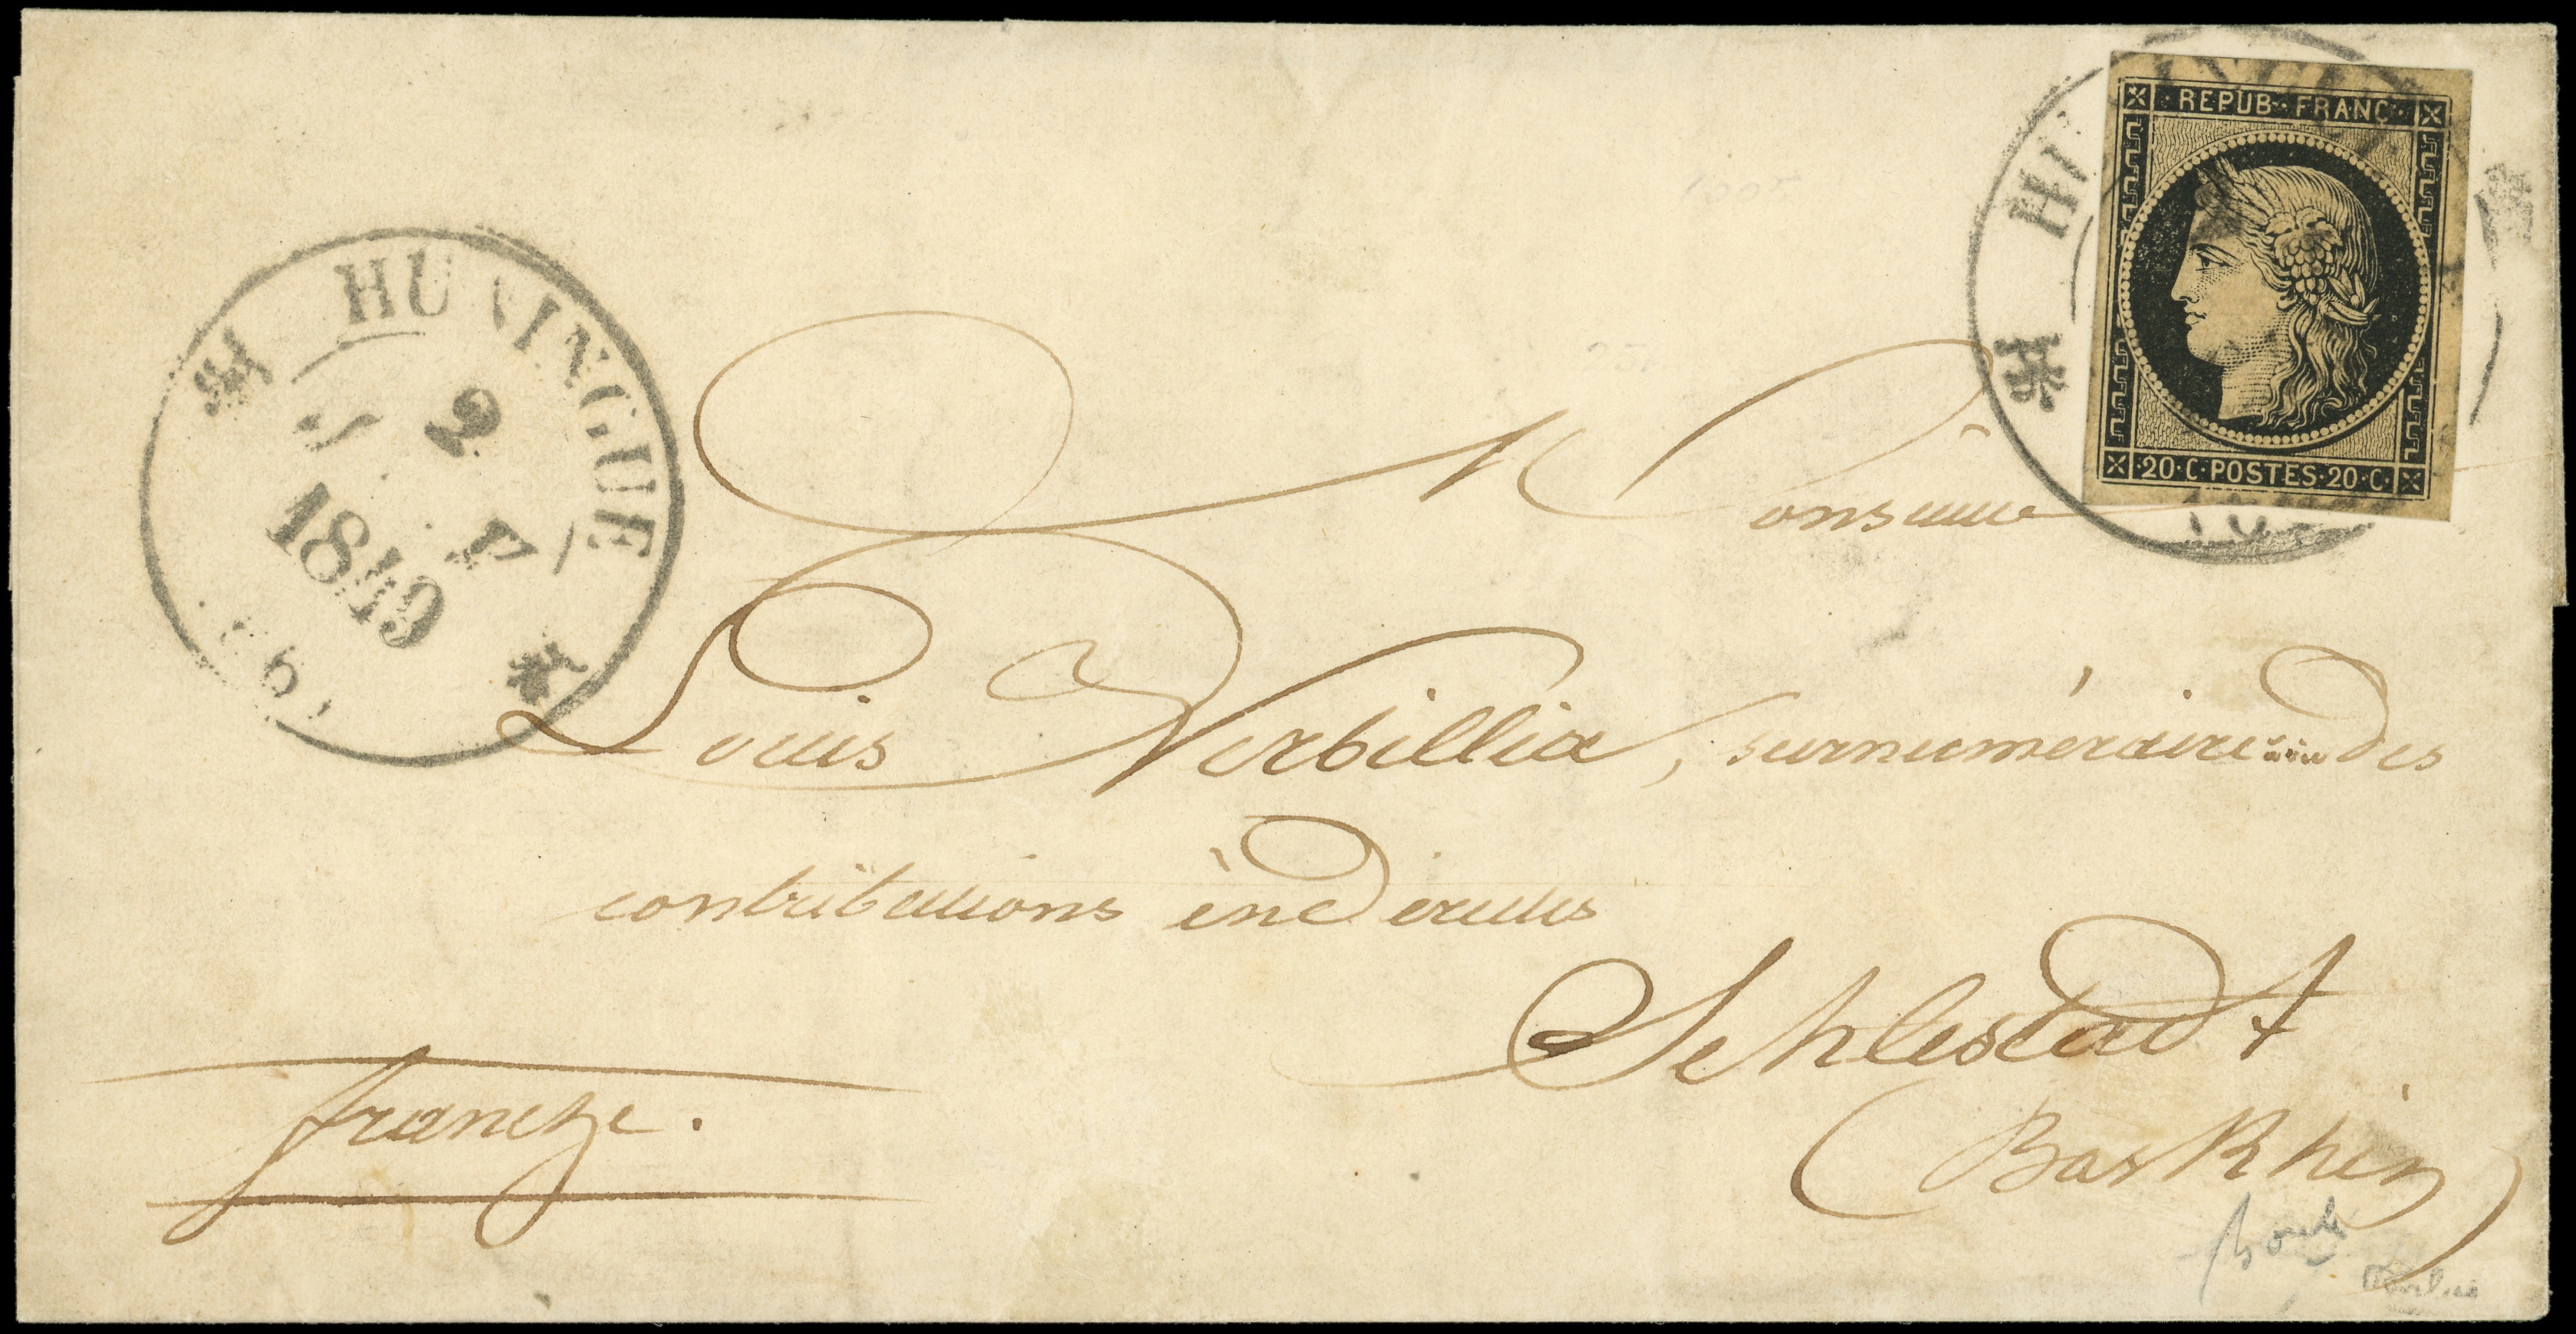 HUNINGUE
2
J V
1849
REPUB·FRANÇ·
20·C·POSTES·20·C·
HU
Monsieur
Louis Verbillia, surnuméraire des
contributions indirectes
Schlestadt
(Bas Rhin)
franche.